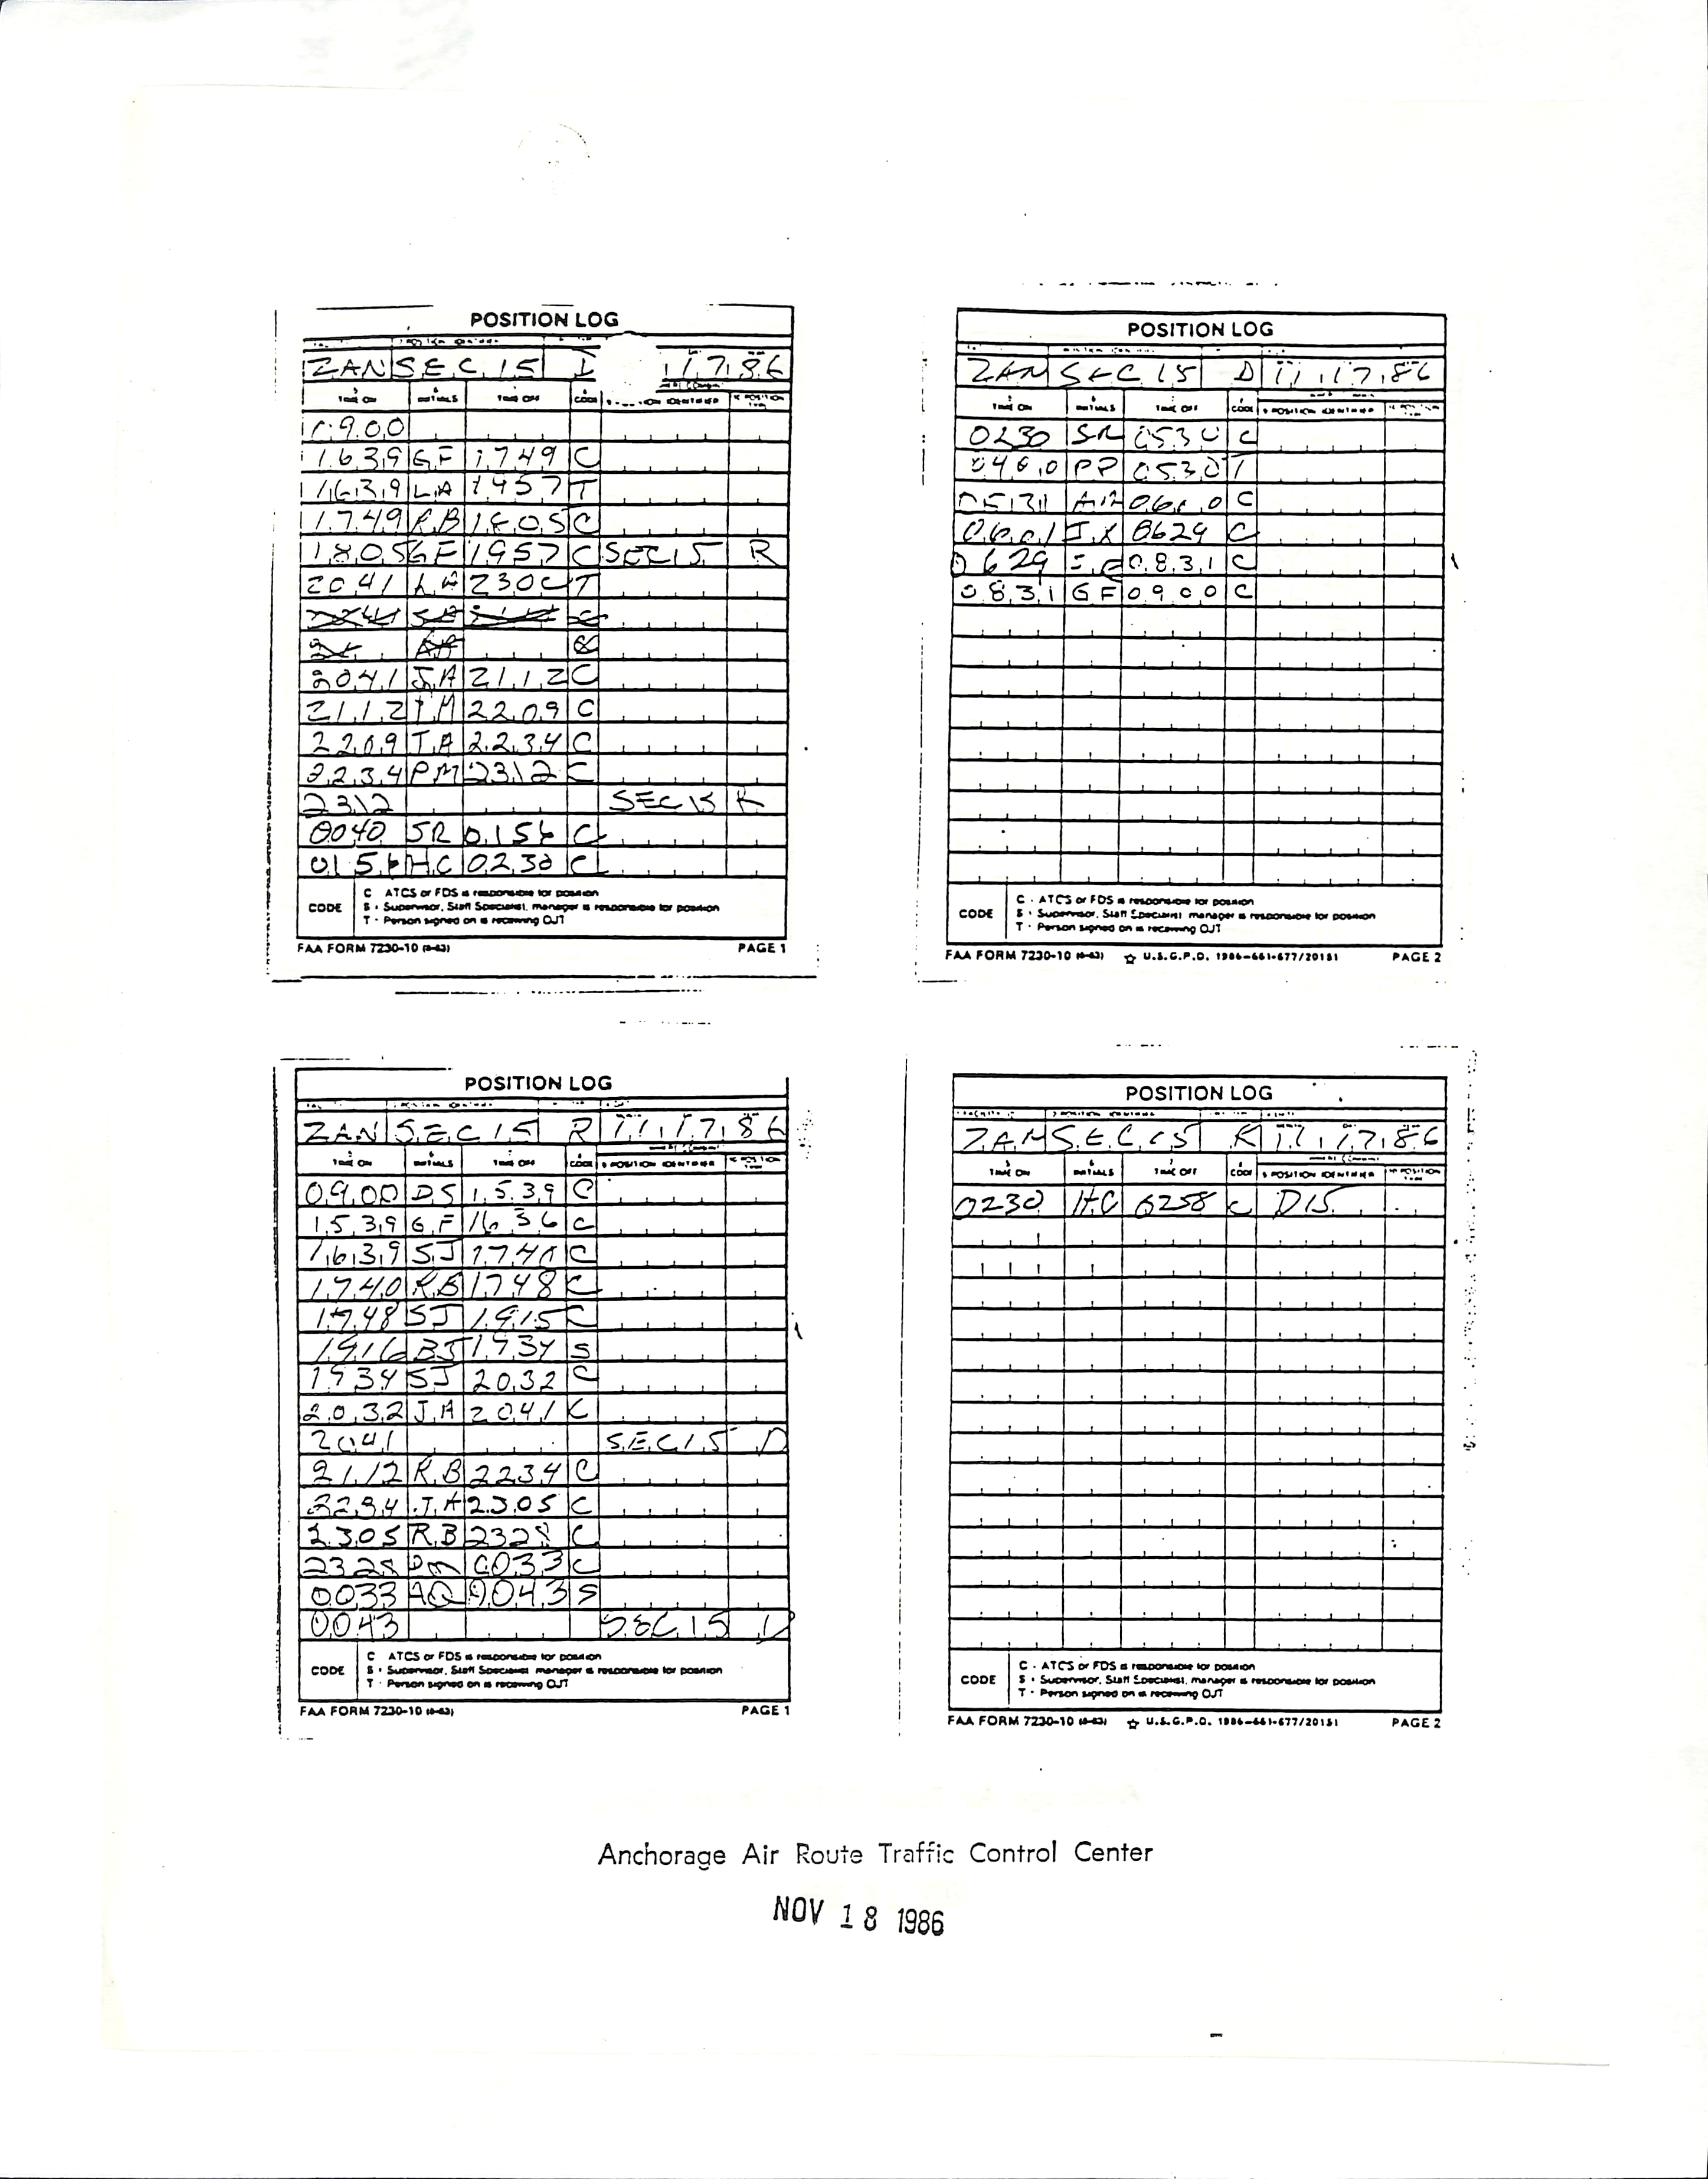 POSITION LOG
ZAN SEC 15 D 11 7 86
TIME ON INITIALS TIME OFF CODE POSITION IDENTIFIER POSITION
0900
1639 GF 1749 C
1639 LA 1957 T
1749 RB 1805 C
1805 GF 1957 C SEC15 R
2041 LA 2300 T
2041 JA 2112 C
2112 2209 C
2209 JA 2234 C
2234 PM 2312 C
2312 SEC 15 R
0040 SR 0156 C
0156 HC 0230 C
CODE
C ATCS or FDS is responsible for position
S - Supervisor, Staff Specialist, manager is responsible for position
T - Person signed on is receiving OJT
FAA FORM 7230-10 (8-83) PAGE 1
POSITION LOG
ZAN SEC 15 D 11 17 86
TIME ON INITIALS TIME OFF CODE POSITION IDENTIFIER
0230 SR 0530 C
PP 0530 T
0531 C
0601 JX 0629 C
0629 0831 C
0831 GF 0900 C
CODE
C - ATCS or FDS is responsible for position
S - Supervisor, Staff Specialist, manager is responsible for position
T - Person signed on is receiving OJT
FAA FORM 7230-10 (8-83) ☆ U.S.G.P.O. 1986-661-677/20151 PAGE 2
POSITION LOG
ZAN SEC 15 R 11 17 86
TIME ON INITIALS TIME OFF CODE POSITION IDENTIFIER POSITION
0900 DS 1539 C
1539 GF 1636 C
1639 SJ 1740 C
1740 RB 1748 C
1748 SJ 1915 C
1916 BJ 1934 S
1934 SJ 2032 C
2032 JA 2041 C
2041 SEC15 D
2112 RB 2234 C
2234 JA 2305 C
2305 RB 2328 C
2328 PM 0033 C
0033 AQ 0043 S
0043 SEC15 D
CODE
C ATCS or FDS is responsible for position
S - Supervisor, Staff Specialist, manager is responsible for position
T - Person signed on is receiving OJT
FAA FORM 7230-10 (8-83) PAGE 1
POSITION LOG
ZAN SEC 15 R 11 17 86
TIME ON INITIALS TIME OFF CODE POSITION IDENTIFIER POSITION
0230 HC 0258 C D15
CODE
C - ATCS or FDS is responsible for position
S - Supervisor, Staff Specialist, manager is responsible for position
T - Person signed on is receiving OJT
FAA FORM 7230-10 (8-83) ☆ U.S.G.P.O. 1986-661-677/20151 PAGE 2
Anchorage Air Route Traffic Control Center
NOV 18 1986